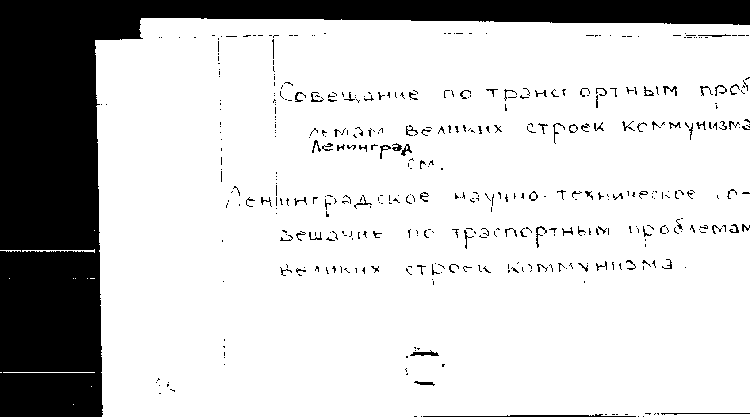 Совещание по транспортным проб
лемам великих строек коммунизма
Ленинград
см.
Ленинградское научно-техническое со-
вещание по траспортным проблемам
великих строек коммунизма.